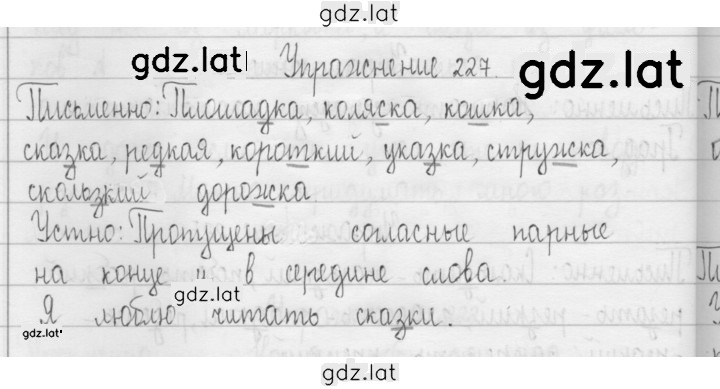 gdz.lat
gdz.lat Упражнение 227. gdz.lat
Письменно: Площадка, коляска, кошка,
сказка, редкая, короткий, указка, стружка,
скользкий дорожка.
Устно: Пропущены согласные парные
на конце и в середине слова.
gdz.lat
Я люблю читать сказки.
gdz.lat
gdz.lat